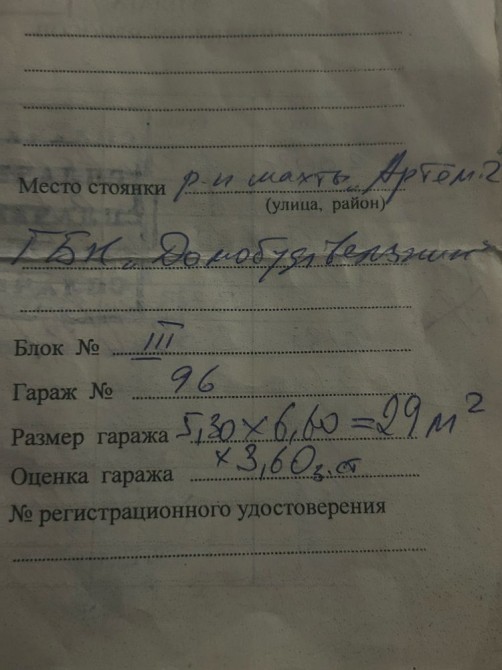 Место стоянки р-н шахты „Артем-2
(улица, район)
ГБК „
Блок № III
Гараж № 96
Размер гаража 5,30 × 6,60 = 29 м²
Оценка гаража × 3,60
№ регистрационного удостоверения